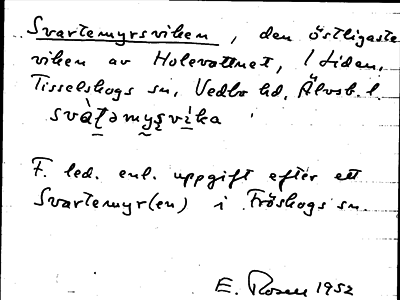 Svartemyrsviken, den östligaste
viken av Holevattnet, 1 tiden,
Tisselskogs sn, Vedbo hd, Älvsb. l.
svàʈəmyʂvìka
F. led. enl. uppgift efter ett
Svartemyr(en) i Fröskogs sn.
E. Rosen 1952